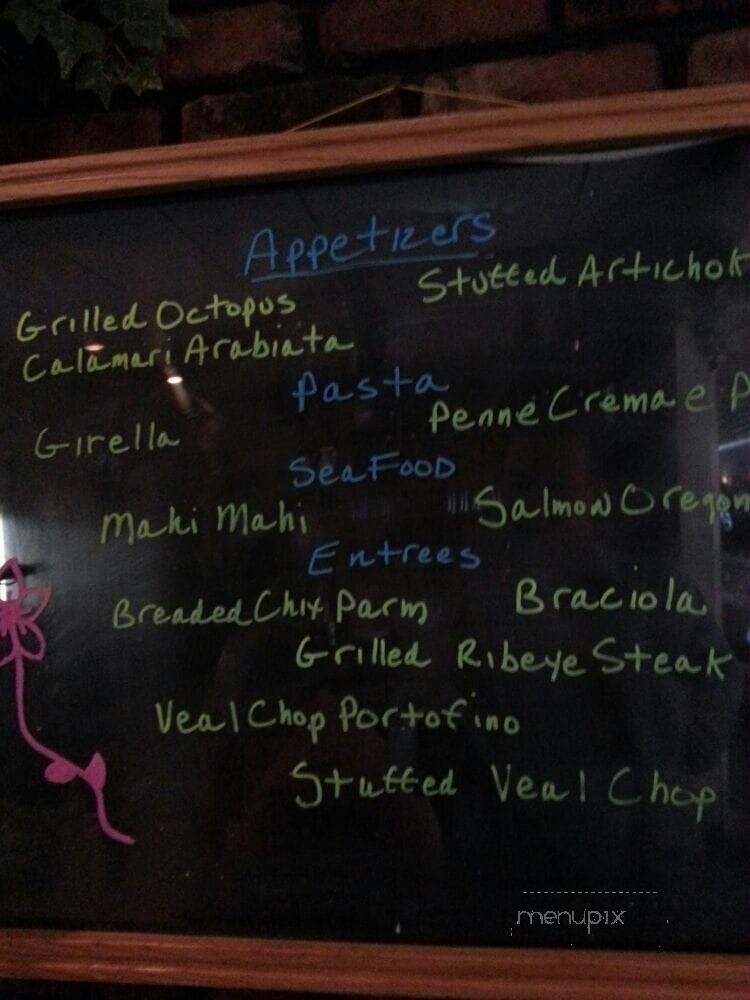 Appetizers
Grilled Octopus Stuffed Artichok
Calamari Arabiata
Pasta
Girella Penne Crema e
SeaFood
Mahi Mahi Salmon Oregon
Entrees
Breaded Chix Parm Braciola
Grilled Ribeye Steak
Veal Chop Portofino
Stuffed Veal Chop
menupix